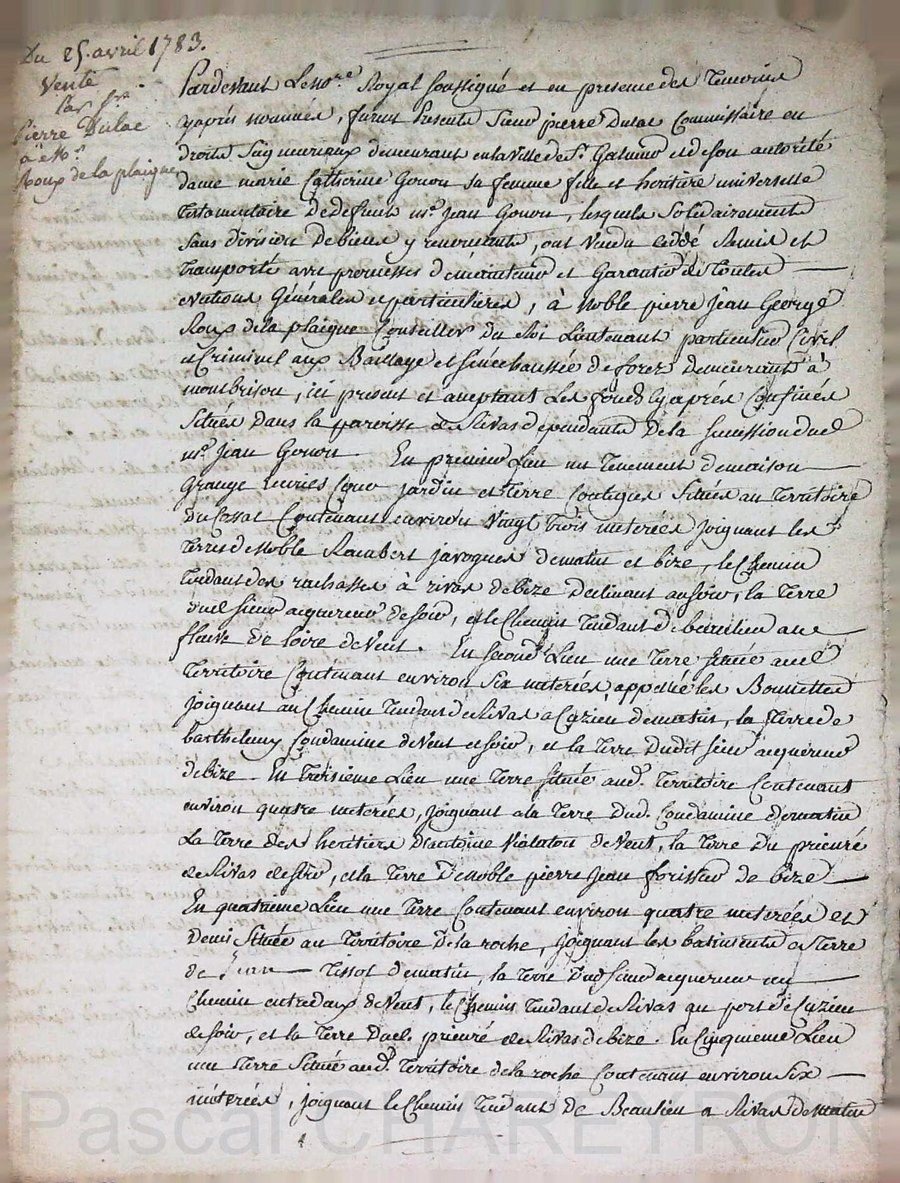 Du 25. avril 1783.
Vente
Par Sr.
Pierre Dulac
à Mr.
Roux de la plaigne
Pardevant Le Nore. Royal soussigné et en presence des Temoins
cyaprés només, furent Presents Sieur pierre Dulac Commissaire en
droits Seigneuriaux demeurant en la Ville de St. Galmier et de son autorité
dame marie Catherine Gonon sa femme fille et heritiere universelle
Testamentaire de defunt me. Jean Gonon, lesquels Solidairement
sans division de biens y renoncants, ont Vendu ceddé Remis et
Transporté avec promesses de maintenir et Garantir de Toutes
evictions Générales et particulieres, à Noble pierre Jean George
Roux de la plaigne Conseiller du Roi Lieutenant particulier Civil
et Criminel aux Bailliage et Sénéchaussée de forez demeurant à
montbrison, ici present et acceptant Les fonds cyaprés Confinés
Situés dans la paroisse de Rivas dependants de la Succession dud.
me. Jean Gonon. En premier Lieu un Tenement de maison
Grange Ecuries Cour jardin et Terre Contigus Situés au Territoire
du Contenant environ Vingt Trois meterées joignant les
Terres de Noble Rambert javogues de matin et bize, le Chemin
Tendant des rachasses à rivas de bize declinant au soir, la Terre
dud. sieur acquereur de soir, et le Chemin Tendant de beaulieu au
fleuve de loire de Vent. En second Lieu une Terre située aud.
Territoire Contenant environ six meterées, appellée les Bonnettes
joignant au Chemin Tendant de Rivas a Cuzieu de matin, la Terre de
barthelemy Condamine de Vent et soir, et la Terre dudit sieur acquereur
de bize. En Troisieme Lieu une Terre située aud. Territoire Contenant
environ quatre meterées, joignant a la Terre dud. Condamine de matin
La Terre des heritiers d'antoine Violaton de Vent, la Terre du prieuré
de Rivas de soir, et la Terre de Noble pierre Jean forissier de bize
En quatrieme Lieu une Terre Contenant environ quatre meterées et
demi Située au Territoire de la roche, joignant les batiments et Terre
de Jean Tissot de matin, la Terre dud. sieur acquereur un
Chemin entredeux de Vent, le Chemin Tendant de Rivas au port de Cuzieu
de soir, et la Terre dud. prieuré de Rivas de bize. En Cinquieme Lieu
une Terre Située aud. Territoire de la roche Contenant environ six
meterées, joignant le Chemin Tendant de Beaulieu a Rivas de matin
Pascal CHAREYRON